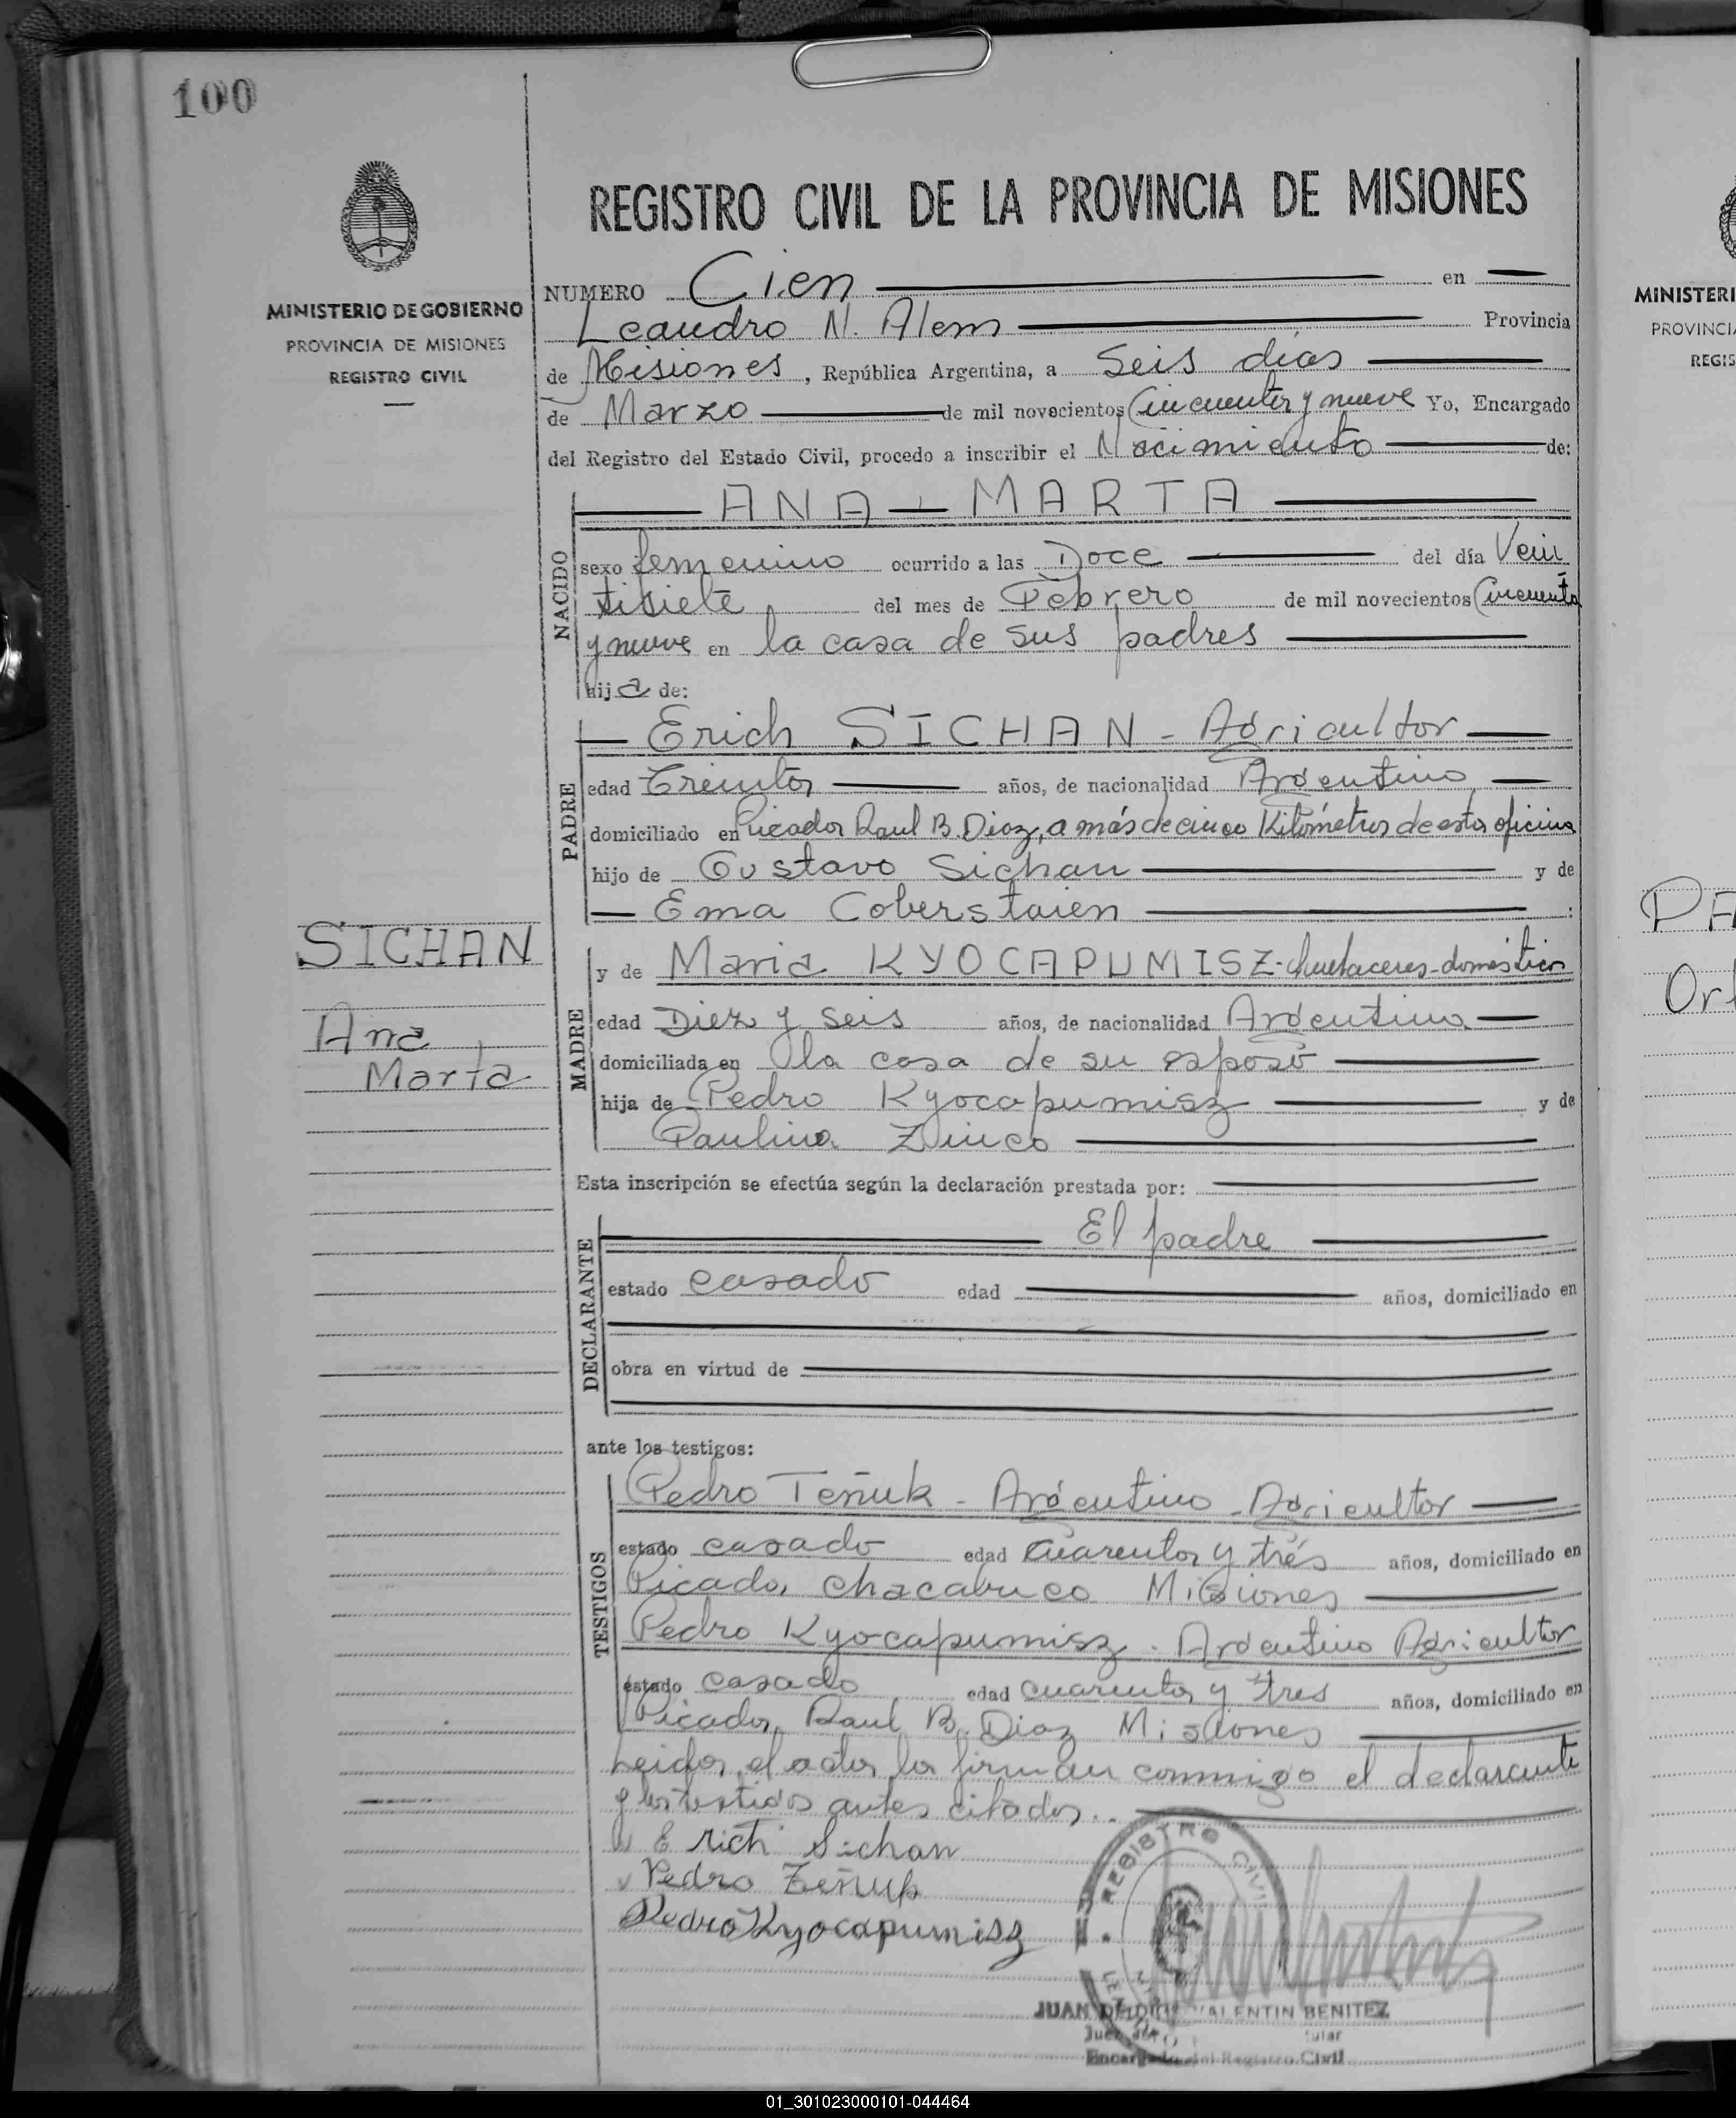 100
MINISTERIO DE GOBIERNO
PROVINCIA DE MISIONES
REGISTRO CIVIL
REGISTRO CIVIL DE LA PROVINCIA DE MISIONES
NUMERO Cien en
Leandro N. Alem Provincia
de Misiones, República Argentina, a Seis días
de Marzo de mil novecientos Cincuenta y nueve Yo, Encargado
del Registro del Estado Civil, procedo a inscribir el Nacimiento de:
ANA - MARTA
NACIDO
sexo femenino ocurrido a las Doce del día Vein
tisiete del mes de Febrero de mil novecientos Cincuenta
y nueve en la casa de sus padres
hija de:
Erich SICHAN - Agricultor
PADRE
edad Treinta años, de nacionalidad Argentino
domiciliado en Picada Raul B. Diaz, a más de cinco Kilómetros de esta oficina
hijo de Gustavo Sichan y de
Ema Coberstaien :
SICHAN
Ana
Marta
y de Maria KYOCAPUMISZ - quehaceres - domésticos
MADRE
edad Diez y seis años, de nacionalidad Argentina
domiciliada en la casa de su esposo
hija de Pedro Kyocapumisz y de
Paulina Zinco
Esta inscripción se efectúa según la declaración prestada por:
El padre
DECLARANTE
estado casado edad años, domiciliado en
obra en virtud de
ante los testigos:
Pedro Teñuk - Argentino - Agricultor
TESTIGOS
estado casado edad cuarenta y trés años, domiciliado en
Picada chacabuco Misiones
Pedro Kyocapumisz - Argentino Agricultor
estado casado edad cuarenta y tres años, domiciliado en
Picada Raul B. Diaz Misiones
Leida el acta la firman conmigo el declarante
y los testigos antes citados..
Erich Sichan
Pedro
Pedro Kyocapumisz
REGISTRO CIVIL
JUAN DE DIOS VALENTIN BENITEZ
Juez
Encargado del Registro Civil
MINISTERI
PROVINCI
REGIS
01_301023000101-044464